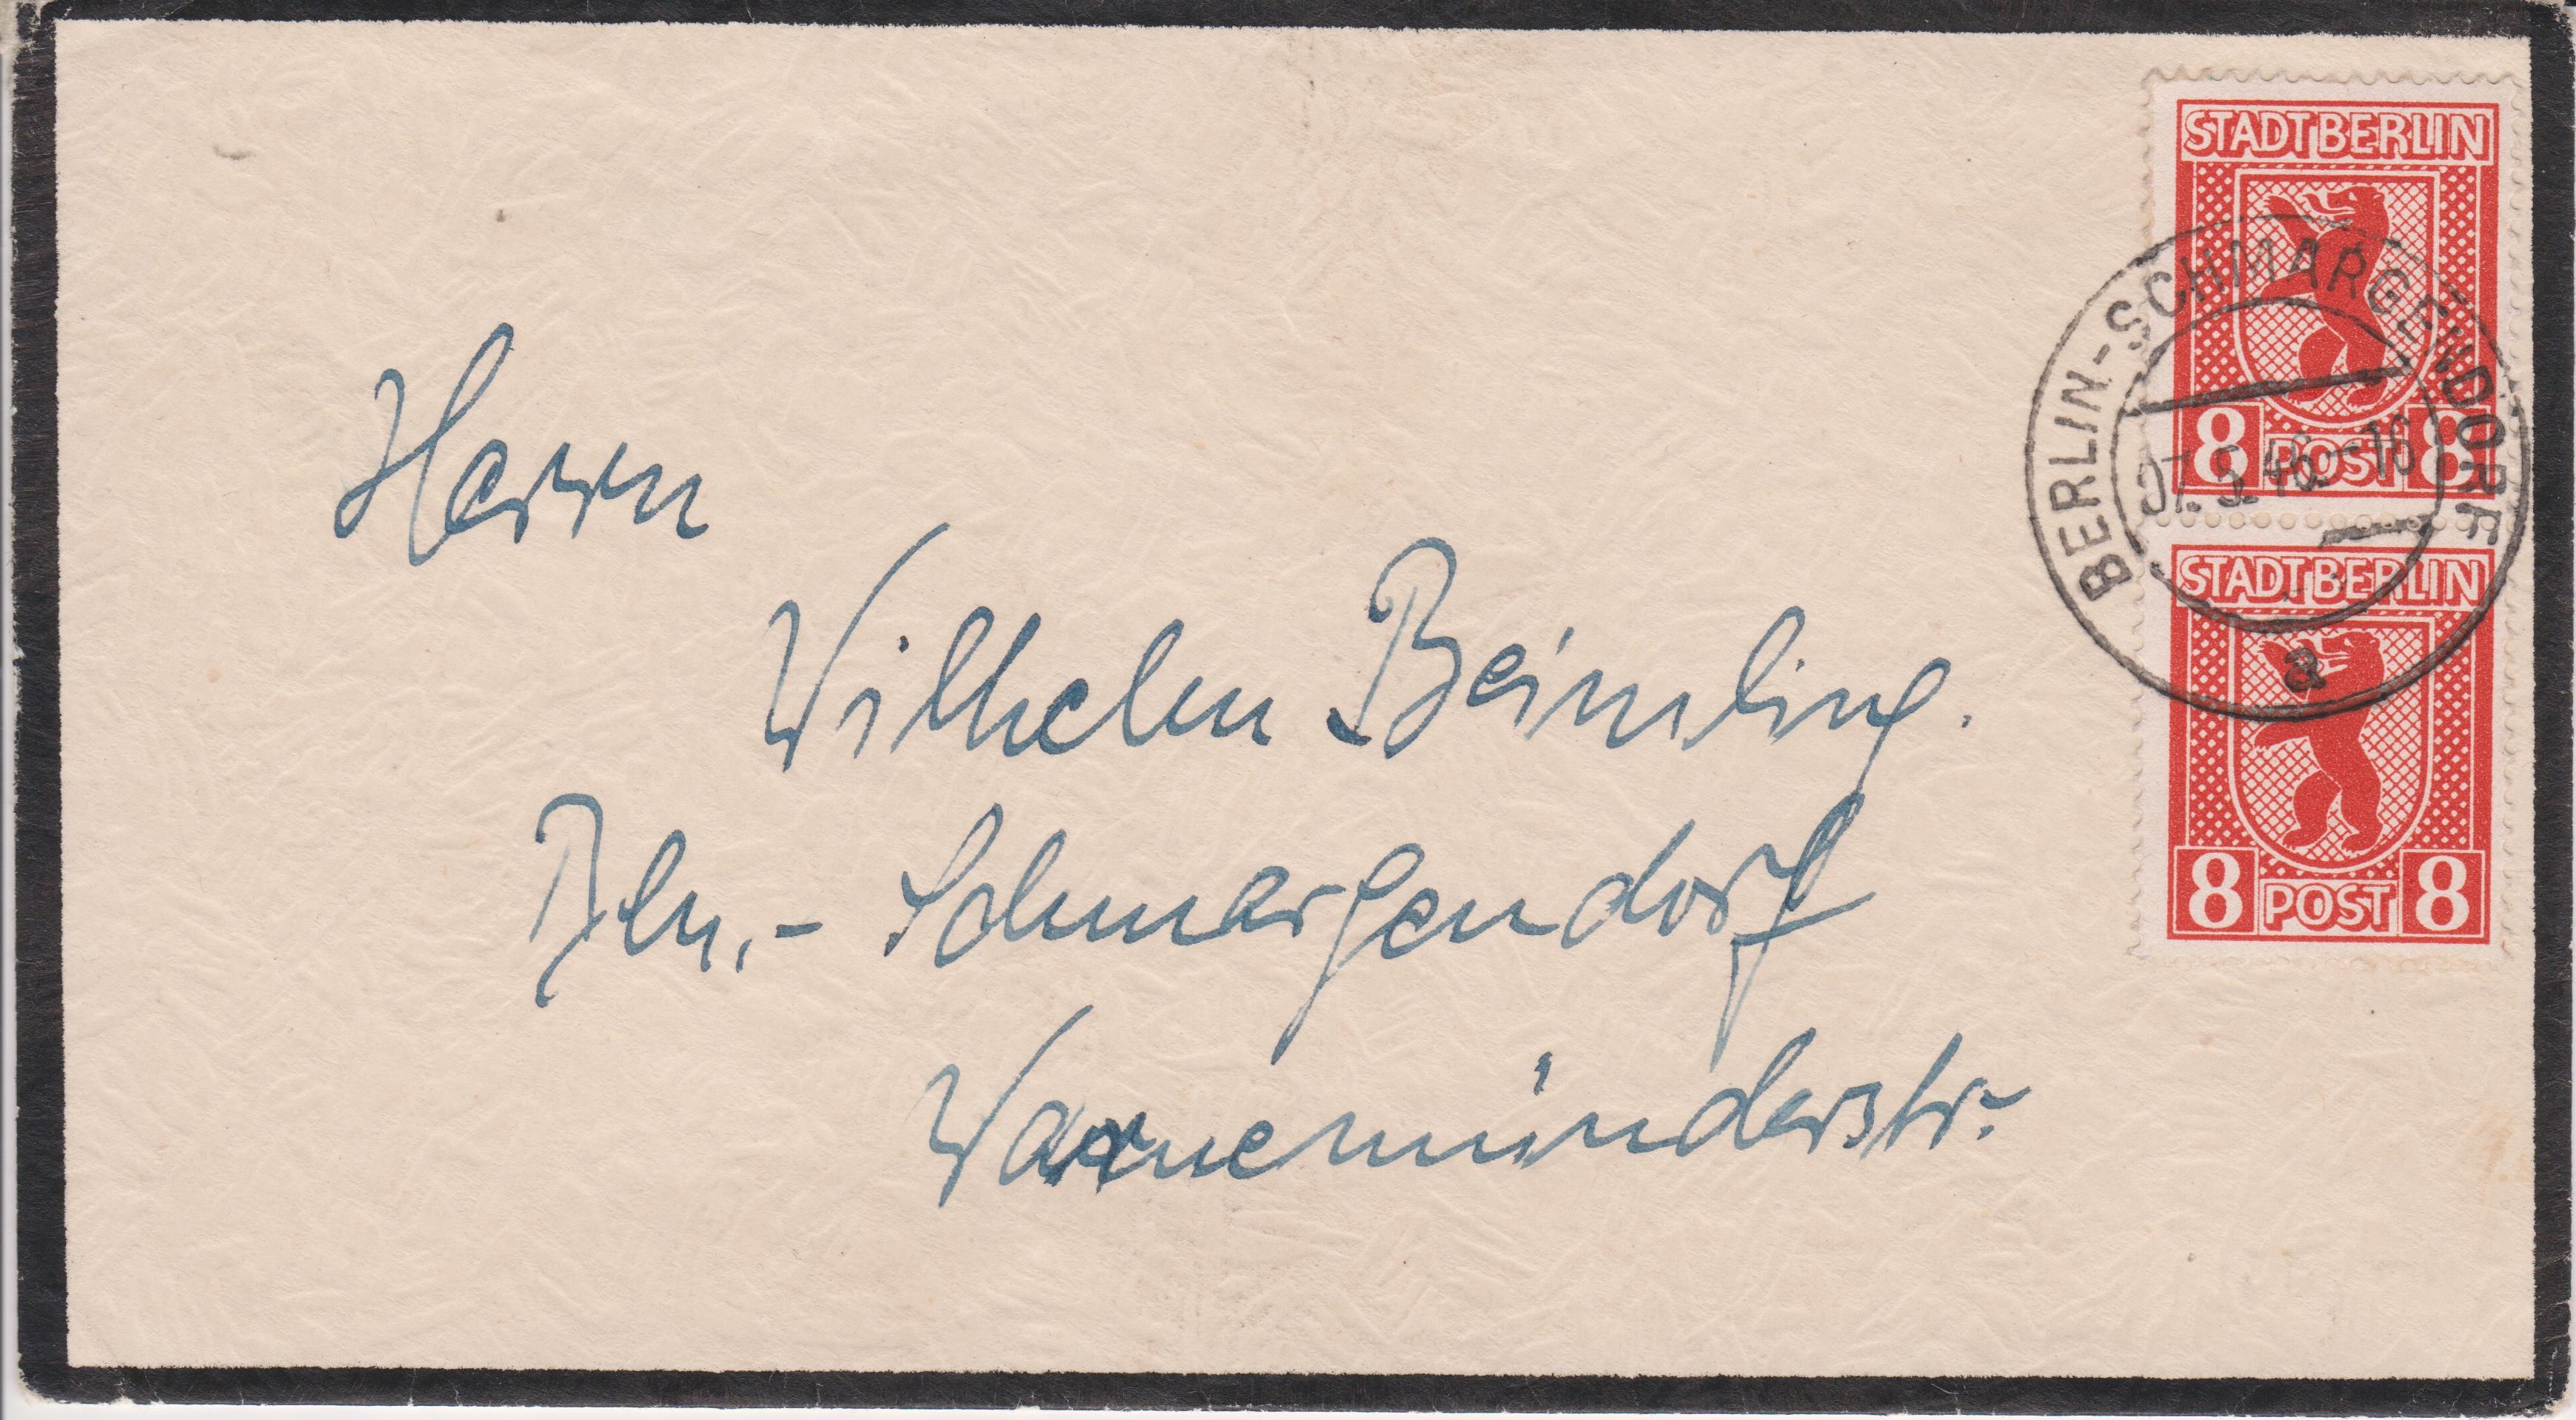 STADT BERLIN
8 POST 8
BERLIN-SCHMARGENDORF
07.5.46.-16
a
STADT BERLIN
8 POST 8
Herrn
Wilhelm Beimling.
Bln.- Schmargendorf
Warnemünderstr.